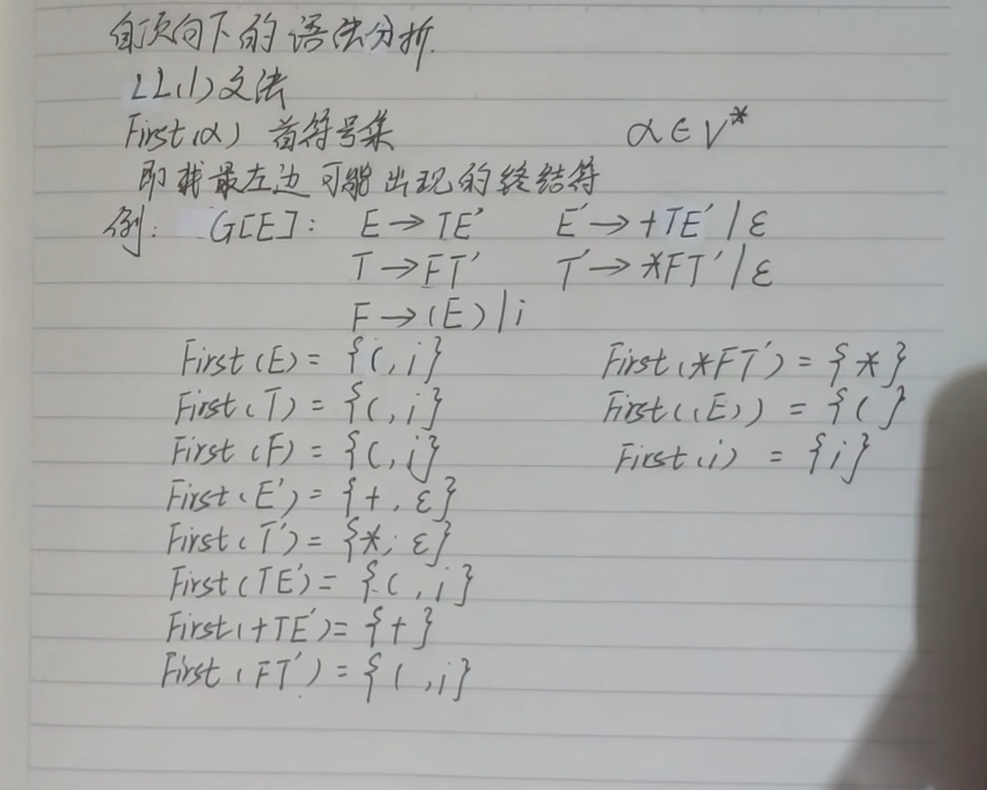 自顶向下的语法分析.
LL(1)文法
First(α) 首符号集 α∈V*
即找最左边可能出现的终结符
例: G[E]: E→TE′ E′→+TE′|ε
T→FT′ T′→*FT′|ε
F→(E)|i
First(E)={(,i} First(*FT′)={*}
First(T)={(,i} First((E))={(}
First(F)={(,i} First(i)={i}
First(E′)={+,ε}
First(T′)={*,ε}
First(TE′)={(,i}
First(+TE′)={+}
First(FT′)={(,i}